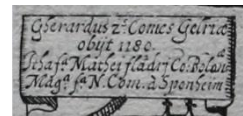 Gherardus 2s Comes Gelriæ
obijt 1180.
Ithafa Mathei flādrj Co: Bolon
Magª fª N. Com. à Sponheim